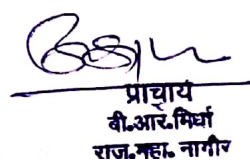 प्राचार्य
बी.आर.मिर्धा
राज.महा. नागौर